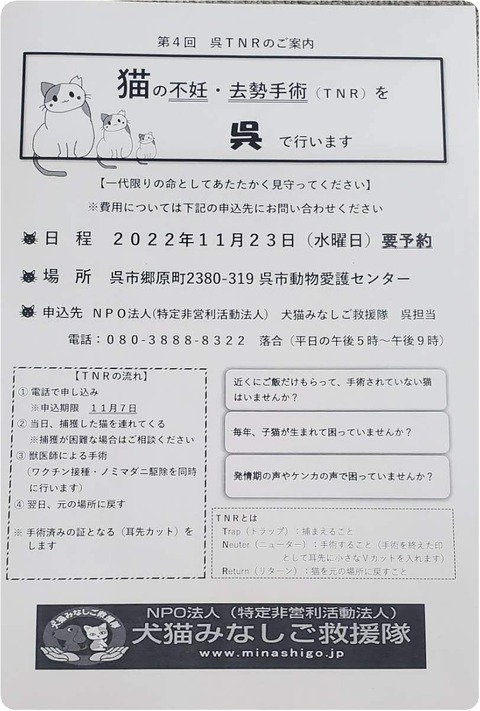 第４回　呉ＴＮＲのご案内
猫の不妊・去勢手術（ＴＮＲ）を
呉 で行います
【一代限りの命としてあたたかく見守ってください】
※費用については下記の申込先にお問い合わせください
日　程　２０２２年１１月２３日（水曜日）要予約
場　所　呉市郷原町2380-319 呉市動物愛護センター
申込先　ＮＰＯ法人(特定非営利活動法人)　犬猫みなしご救援隊　呉担当
電話：０８０-３８８８-８３２２　落合（平日の午後５時～午後９時）
【ＴＮＲの流れ】
① 電話で申し込み
※申込期限　１１月７日
② 当日、捕獲した猫を連れてくる
※捕獲が困難な場合はご相談ください
③ 獣医師による手術
（ワクチン接種・ノミマダニ駆除を同時
に行います）
④ 翌日、元の場所に戻す
※ 手術済みの証となる（耳先カット）を
します
近くにご飯だけもらって、手術されていない猫
はいませんか？
毎年、子猫が生まれて困っていませんか？
発情期の声やケンカの声で困っていませんか？
ＴＮＲとは
Trap（トラップ）：捕まえること
Neuter（ニューター）：手術すること（手術を終えた印
として耳先に小さなＶカットを入れます）
Return（リターン）：猫を元の場所に戻すこと
犬猫みなしご救援隊
NPO法人（特定非営利活動法人）
犬猫みなしご救援隊
www.minashigo.jp